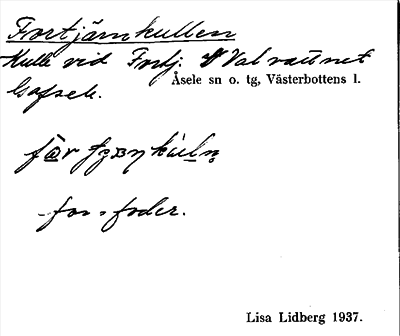 Fortjärnkullen
Kulle vid Fortj. V Valvattnet
Åsele sn o. tg, Västerbottens l.
Gafsele.
for = foder.
Lisa Lidberg 1937.